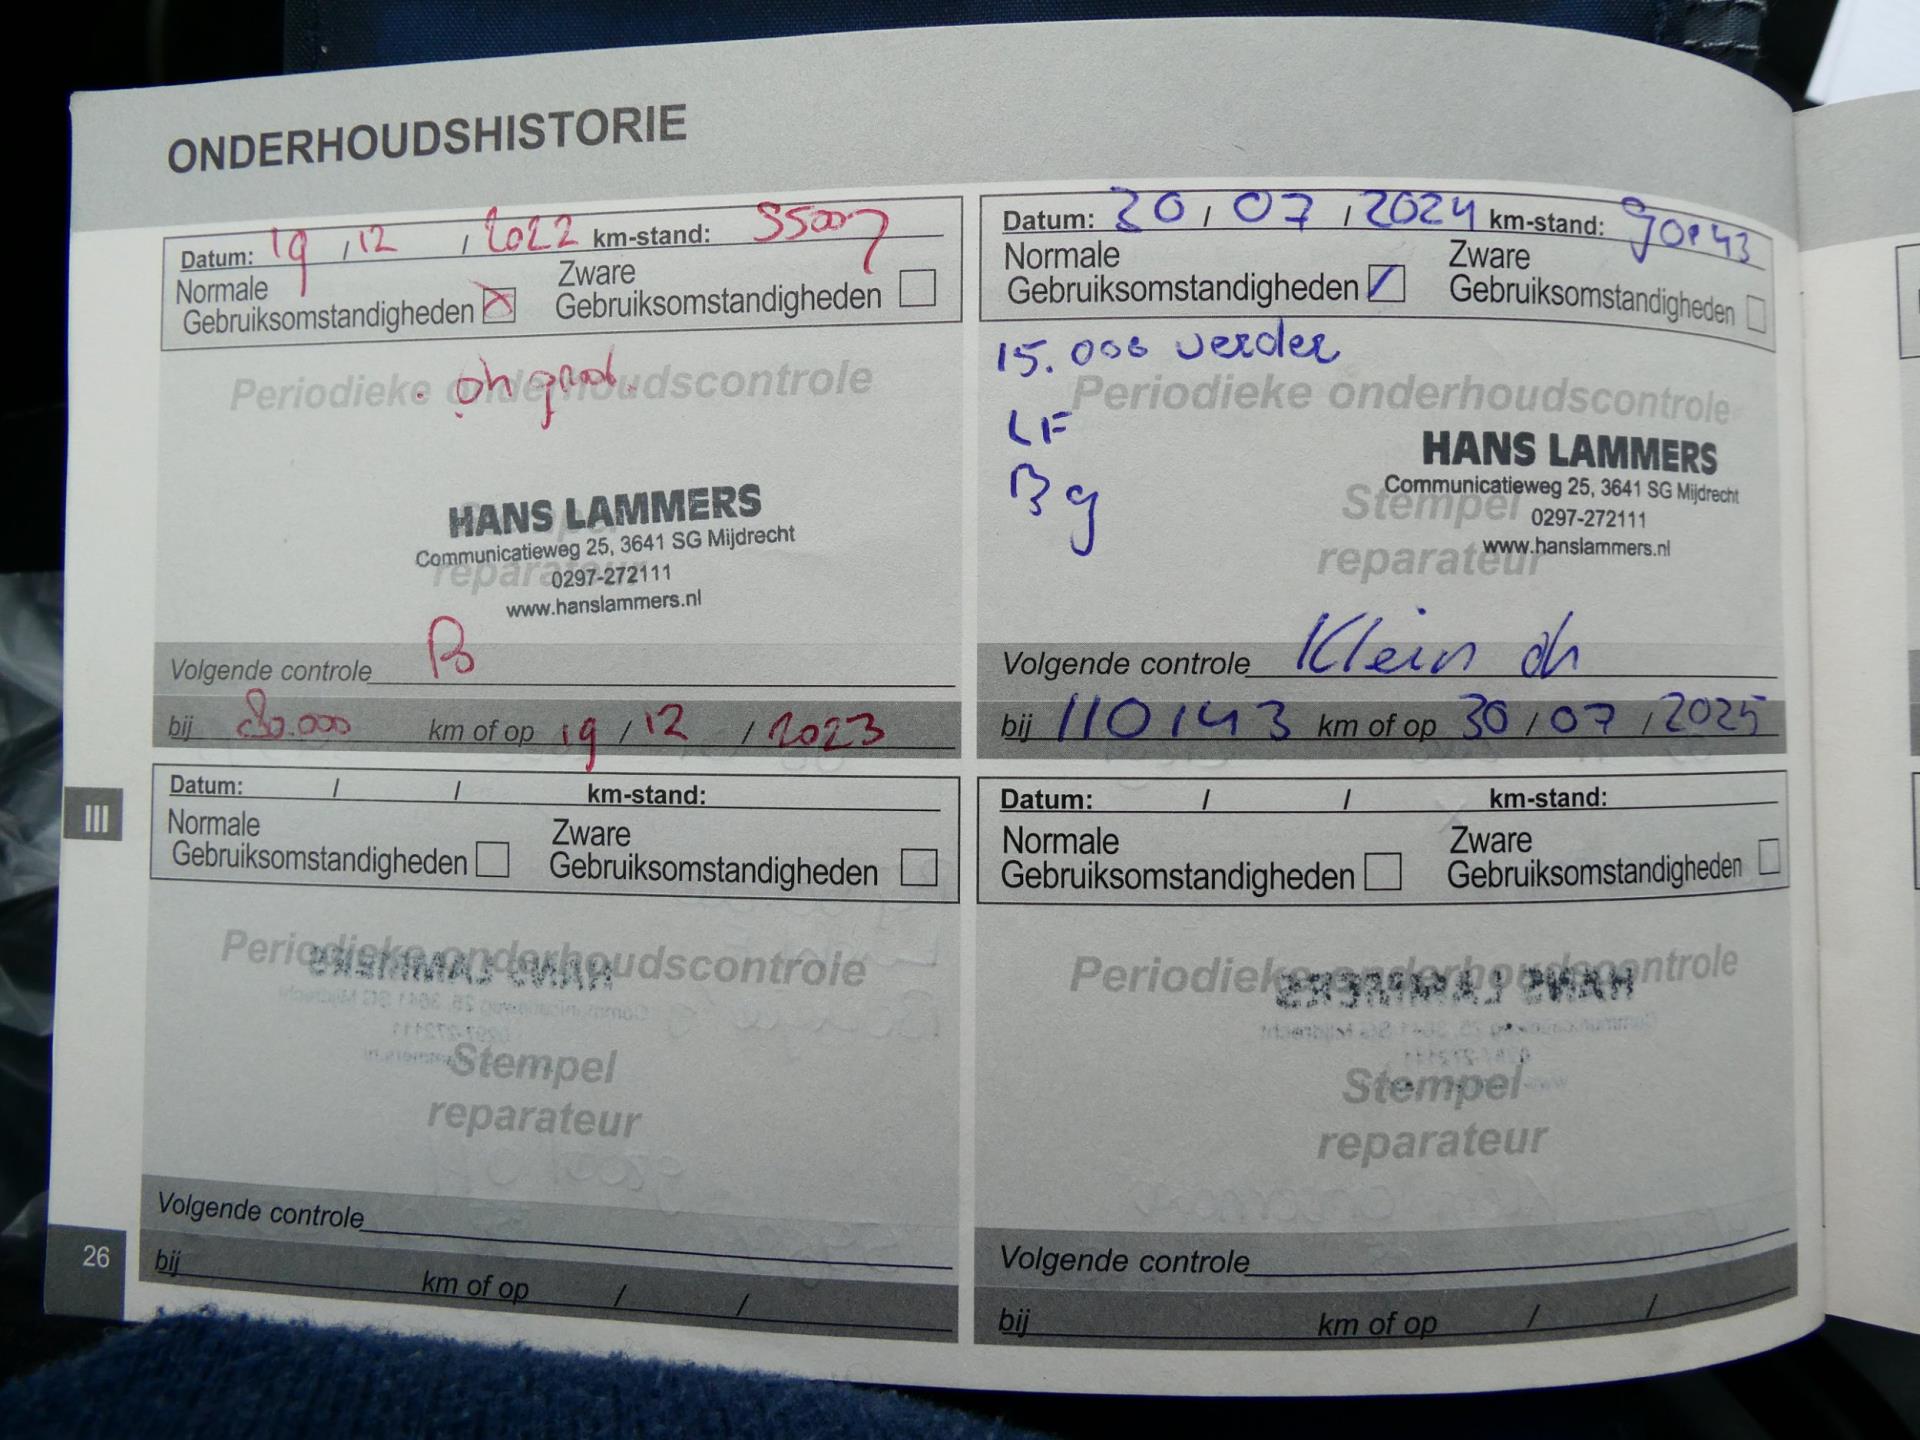 ONDERHOUDSHISTORIE
Datum: 19 / 12 / 2022 km-stand: 55007
Normale
Gebruiksomstandigheden
Zware
Gebruiksomstandigheden
Periodieke onderhoudscontrole
oh groot.
Stempel
reparateur
HANS LAMMERS
Communicatieweg 25, 3641 SG Mijdrecht
0297-272111
www.hanslammers.nl
Volgende controle B
bij 80.000 km of op 19 / 12 / 2023
Datum: 30 / 07 / 2024 km-stand: 90143
Normale
Gebruiksomstandigheden
Zware
Gebruiksomstandigheden
15.000 verder
Periodieke onderhoudscontrole
LF
Bg
Stempel
reparateur
HANS LAMMERS
Communicatieweg 25, 3641 SG Mijdrecht
0297-272111
www.hanslammers.nl
Volgende controle Klein oh
bij 110143 km of op 30 / 07 / 2025
III
Datum: / / km-stand:
Normale
Gebruiksomstandigheden
Zware
Gebruiksomstandigheden
Periodieke onderhoudscontrole
Stempel
reparateur
Volgende controle
bij km of op / /
Datum: / / km-stand:
Normale
Gebruiksomstandigheden
Zware
Gebruiksomstandigheden
Periodieke onderhoudscontrole
Stempel
reparateur
Volgende controle
bij km of op / /
26